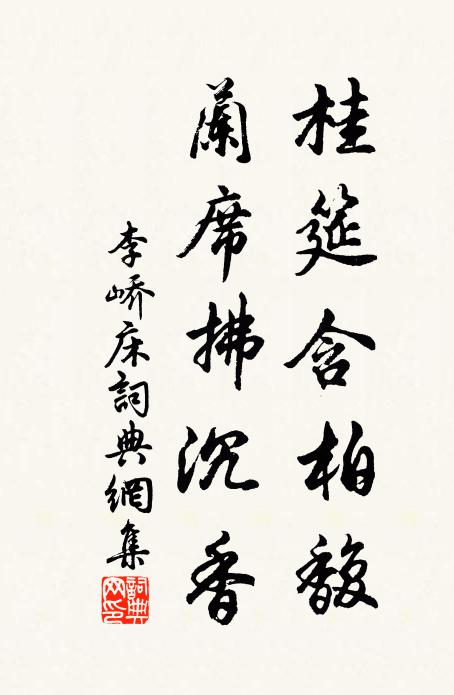 桂筵含柏馥
蘭席拂沉香
李嶠床詞典網集
詞典網印